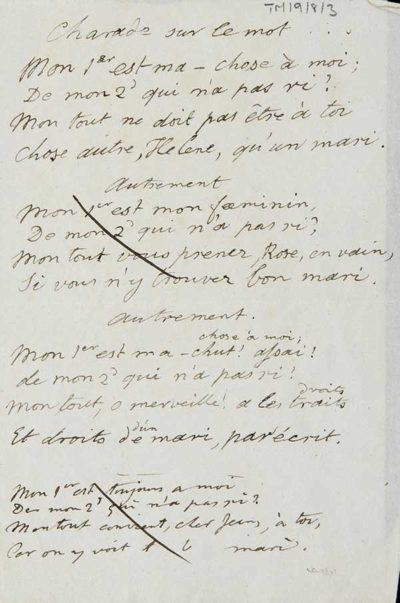 TM/9/8/3
Charade sur le mot . . .
Mon 1er est ma – chose à moi;
De mon 2d qui n'a pas ri?
Mon tout ne doit pas être à toi
Chose autre, Hélène, qu'un mari.
Autrement
Mon 1er est mon fæminin,
De mon 2d qui n'a pas ri?
Mon tout vous prenez, Rose, en vain,
Si vous n'y trouvez bon mari.
Autrement.
chose à moi;
Mon 1er est ma – chut! assai!
de mon 2d qui n'a pas ri?
droits
Mon tout, o merveille! a les traits
d'un
Et droits de mari, par écrit.
Mon 1er est toujours a moi
Deu mon 2d qui n'a pas ri?
Mon tout convient, cher Jean, à toi,
Car on y voit mari.